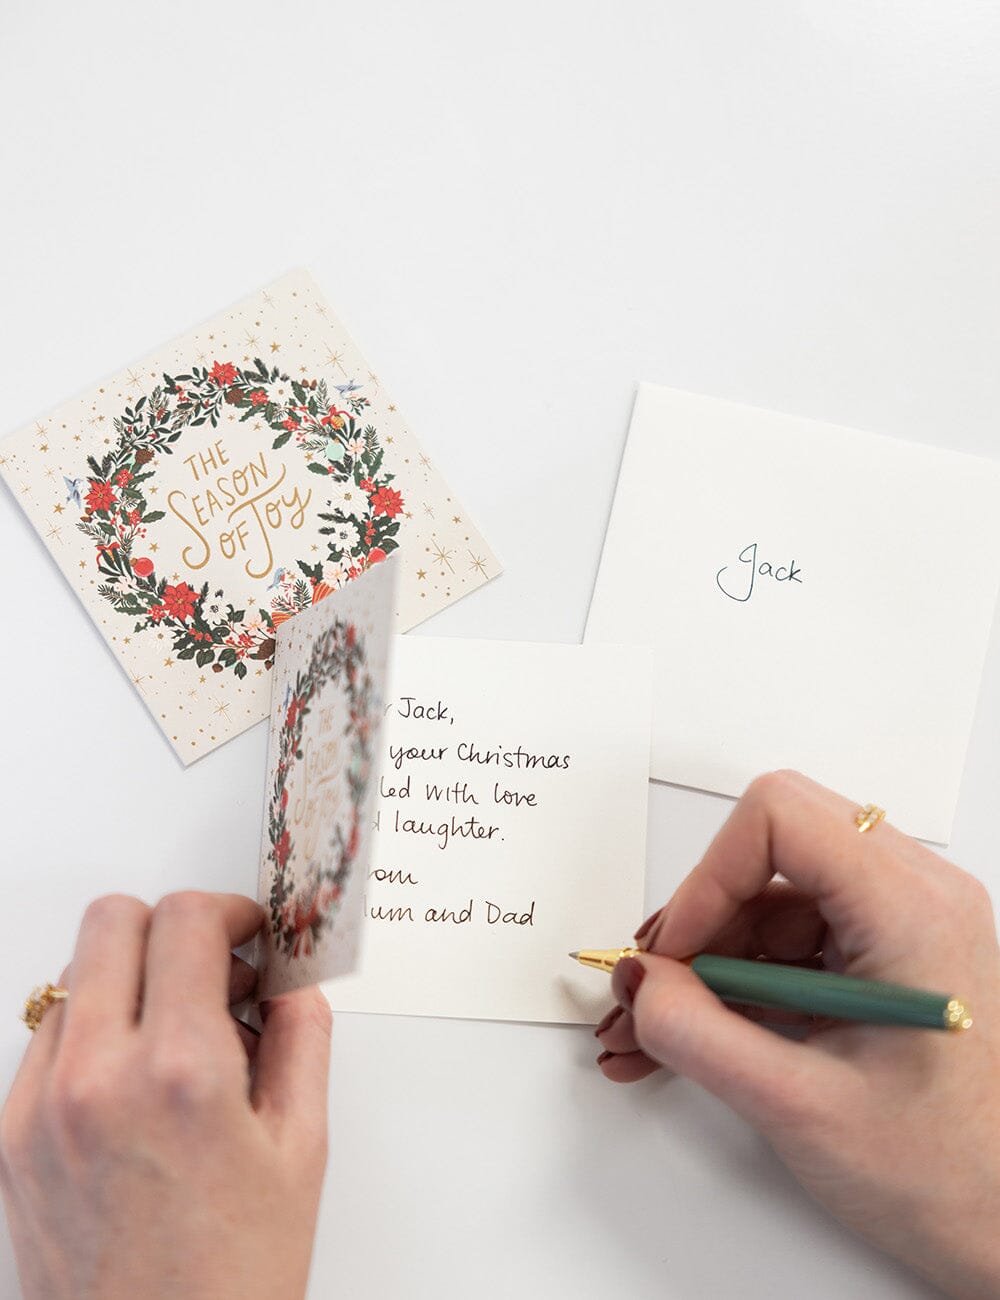 THE
SEASON
OF JOY
Jack
THE
SEASON
OF JOY
Jack,
your Christmas
with love
laughter.
and Dad